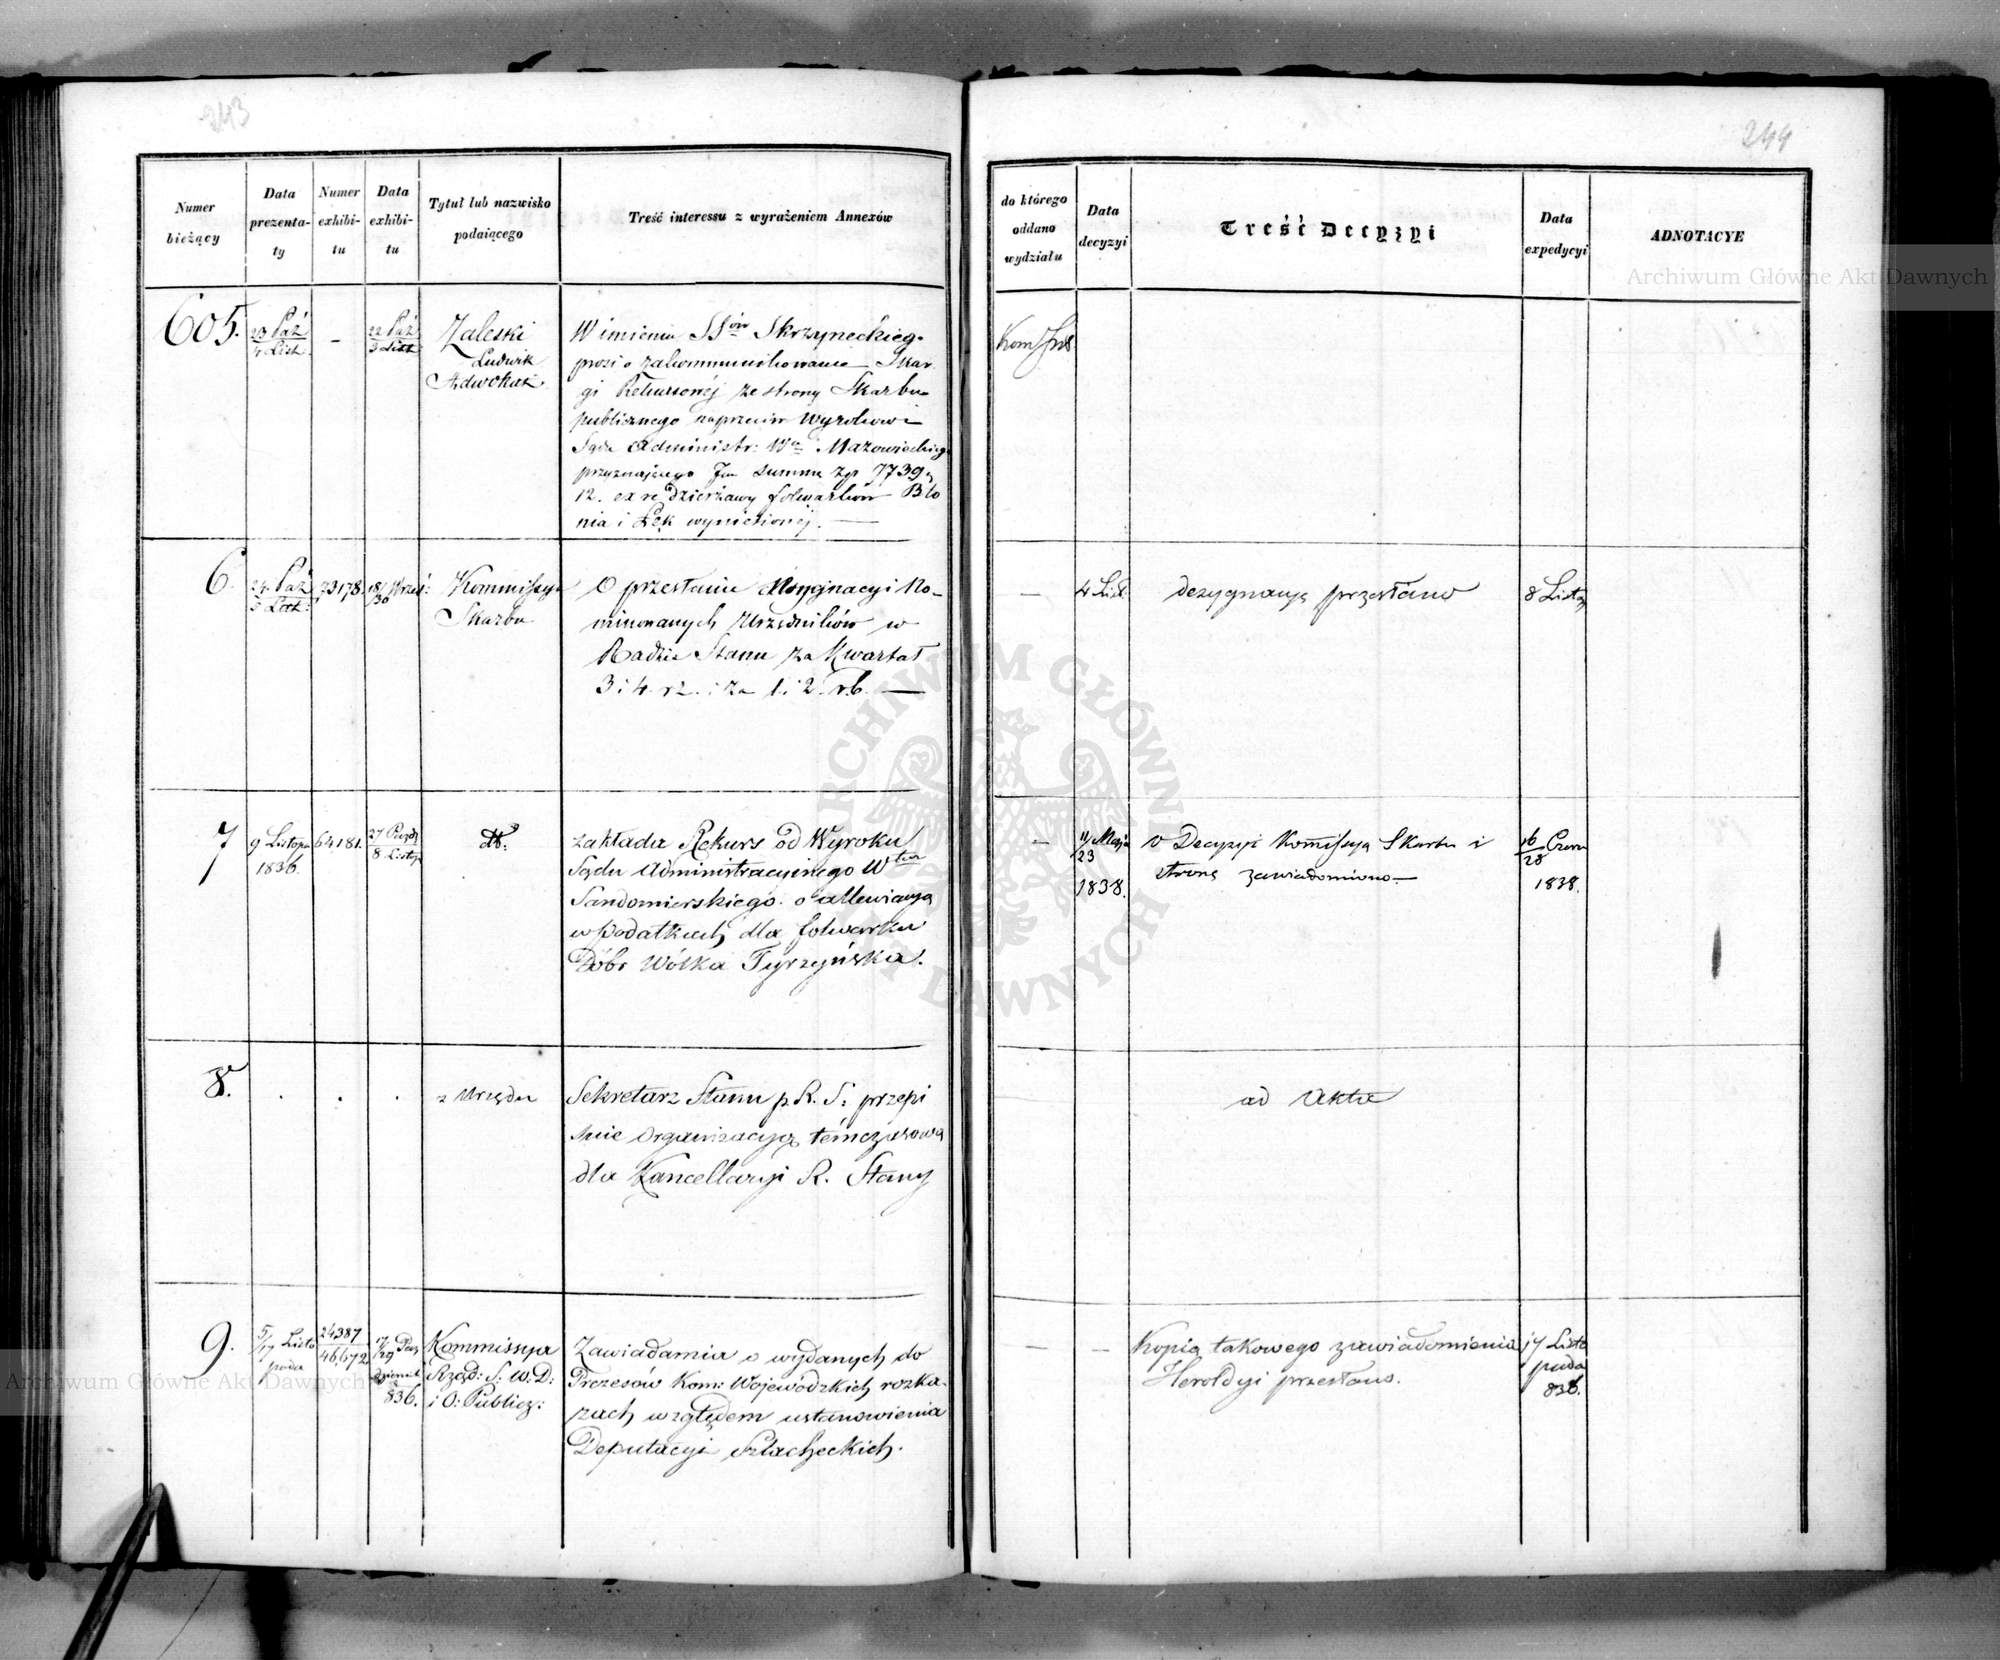 243
Numer
bieżący
Data
prezenta-
ty
Numer
exhibi-
tu
Data
exhibi-
tu
Tytuł lub nazwisko
podaiącego
Treść interessu z wyrażeniem Annexów
605.
23 Paź
4 List.
-
22 Paź
3 List
Zaleski
Ludwik
Adwokat
W imieniu SSów Skrzyneckieg.
prosi o zakommunikowanie Skar-
gi Rekursowéj ze strony Skarbu
publicznego naprzeciw Wyrokowi
Sądu Administr: Wa Mazowieckieg
przyznającego Im summę zp 7739,
12. ex re dzierżawy folwarków Bło
nia i Łęk wyniesionéj. —
6.
24. Paź
5 List:
73178.
18/30 Wrześ:
Kommissya
Skarbu
O przesłanie Assygnacyi No-
minowanych Urzędników w
Radzie Stanu za Kwartał
3 i 4. rz. i za 1. i 2. r.b. —
7
9 Listopa
1836.
64181.
27 Paźdz
8 Listop
dt:
zakłada Rekurs od Wyroku
Sądu Administracyinego Wtwa
Sandomierskiego. o allewiacyą
w podatkach dla folwarku
Dóbr Wólka Tyrzyńska.
8.
.
.
.
z Urzędu
Sekretarz Stanu p R. S: przepi
suie organizacyą témczasową
dla Kancellaryi R. Stanu
9.
5/17 Listo
pada
24387
46,672
17/29 Paź
dziernik
836.
Kommissya
Rząd: S: W: D:
i O: Publicz:
Zawiadamia o wydanych do
Prezesów Kom: Wojewódzkich rozka-
zach względem ustanowienia
Deputacyi Szlacheckich.
244
do którego
oddano
wydziału
Data
decyzyi
Treść Decyzyi
Data
expedycyi
ADNOTACYE
—
4 List.
dezygnacyą przesłano
8 Listo
—
11/23 Maja
1838.
o Decyzyi Kommissya Skarbu i
stronę zawiadomiono —
16/28 Czerw
1838.
ad Akta
—
—
Kopią takowego zawiadomienia
Heroldyi przesłano.
17 Listo
pada
836.
Archiwum Główne Akt Dawnych
ARCHIWUM GŁÓWNE AKT DAWNYCH
Archiwum Główne Akt Dawnych